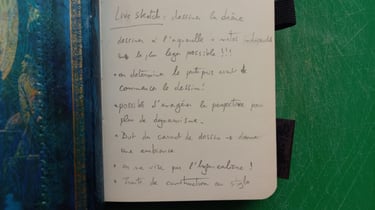 Live sketch : dessiner la scène
dessiner à l'aquarelle
le plus léger possible !!!
• on détermine le parti pris avant de
commencer le dessin !
• possible d'exagérer la perspective pour
plus de dynamisme.
• But du carnet de dessin → donner
une ambiance
• on ne vise pas l'hyperréalisme !
• Traits de construction au stylo